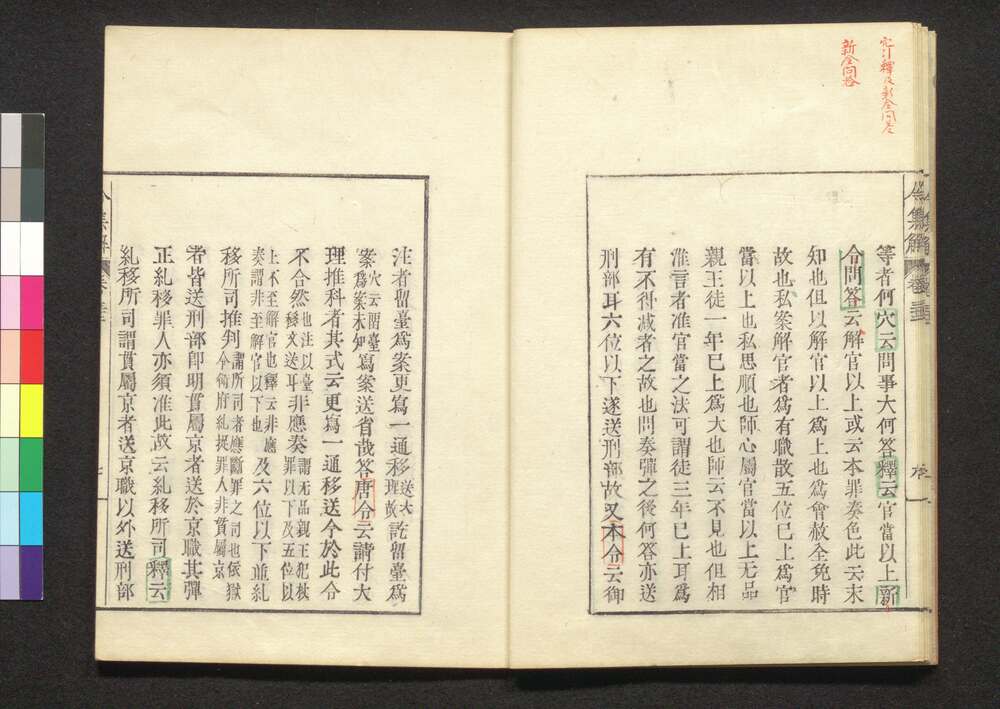 穴引釋及新令問答
新令問答
令集解 卷三十三
等者何穴云問事大何答釋云官當以上新
令問答云解官以上或云本罪奏色此云未
知也但以解官以上爲上也爲會赦全免時
故也私案解官者爲有職散五位已上爲官
當以上也私思順也師心屬官當以上无品
親王徒一年已上爲大也師云不見也但相
准言者准官當之法可謂徒三年已上耳爲
有不得減者之故也問奏彈之後何答亦送
刑部耳六位以下遂送刑部故又本令云御
注者留臺爲案更寫一通移送大理故訖留臺爲
案穴云留臺爲案未知寫案送省哉答唐令云請付大
理推科者其式云更寫一通移送今於此令
不合然也注以臺移文送耳非應奏謂无品親王犯杖罪以下及五位以
上不至解官也釋云非應奏謂非至解官以下也及六位以下並糺
移所司推判謂所司者應斷罪之司也依獄令衛府糺捉罪人非貫屬京
者皆送刑部卽明貫屬京者送於京職其彈
正糺移罪人亦須准此故云糺移所司釋云
糺移所司謂貫屬京者送京職以外送刑部